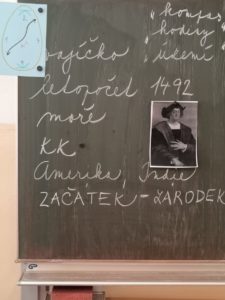 kompas
hodiny
vajíčko území
letopočet 1492
moře
KK
Amerika, Indie
ZAČÁTEK - ZÁRODEK